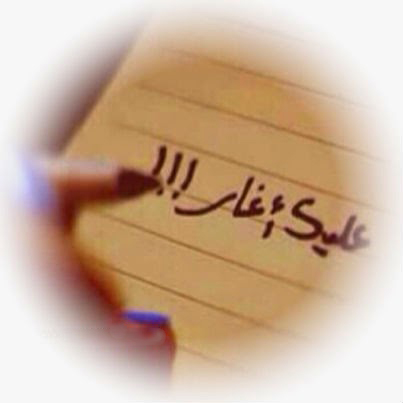 عليك أغار!!!